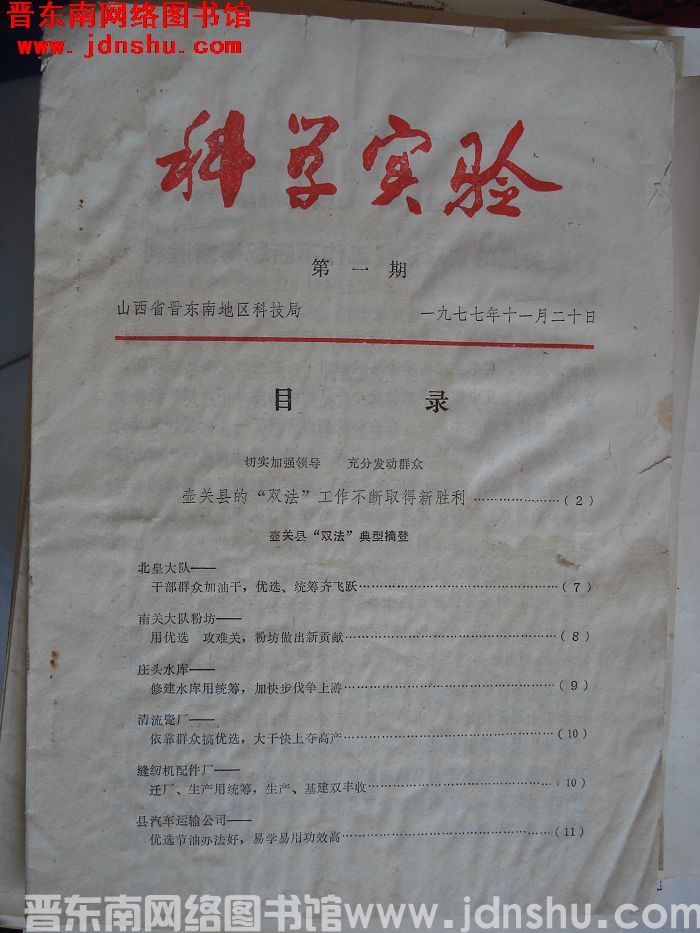 晋东南网络图书馆
www.jdnshu.com
科学实验
第一期
山西省晋东南地区科技局 一九七七年十一月二十日
目录
切实加强领导 充分发动群众
壶关县的“双法”工作不断取得新胜利……………(2)
壶关县“双法”典型摘登
北皇大队——
干部群众加油干，优选、统筹齐飞跃……………(7)
南关大队粉坊——
用优选 攻难关，粉坊做出新贡献……………(8)
庄头水库——
修建水库用统筹，加快步伐争上游……………(9)
清流瓷厂——
依靠群众搞优选，大干快上夺高产……………(10)
缝纫机配件厂——
迁厂、生产用统筹，生产、基建双丰收……………(10)
县汽车运输公司——
优选节油办法好，易学易用功效高……………(11)
晋东南网络图书馆www.jdnshu.com